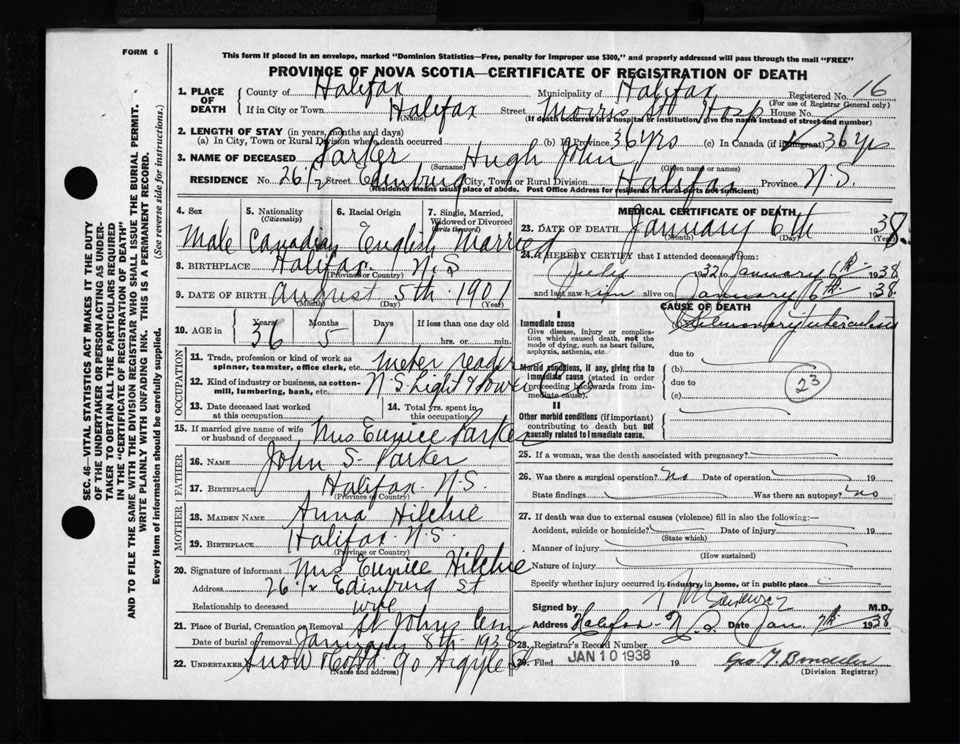 FORM 6
This form if placed in an envelope, marked "Dominion Statistics—Free, penalty for improper use $300," and properly addressed will pass through the mail "FREE"
PROVINCE OF NOVA SCOTIA—CERTIFICATE OF REGISTRATION OF DEATH
SEC. 46—VITAL STATISTICS ACT MAKES IT THE DUTY
OF THE UNDERTAKER OR PERSON ACTING AS UNDER-
TAKER TO OBTAIN ALL THE PARTICULARS REQUIRED
IN THE "CERTIFICATE OF REGISTRATION OF DEATH"
AND TO FILE THE SAME WITH THE DIVISION REGISTRAR WHO SHALL ISSUE THE BURIAL PERMIT.
WRITE PLAINLY WITH UNFADING INK. THIS IS A PERMANENT RECORD.
Every item of information should be carefully supplied. (See reverse side for instructions.)
1. PLACE OF DEATH County of Halifax Municipality of Halifax Registered No. 16
(For use of Registrar General only)
If in City or Town Halifax Street Morris St Hosp House No.
(Name) (If death occurred in a hospital or institution, give the name instead of street and number)
2. LENGTH OF STAY (in years, months and days)
(a) In City, Town or Rural Division where death occurred (b) In Province 36 yrs (c) In Canada (if immigrant) 36 yrs
3. NAME OF DECEASED Parker Hugh John
(Surname) (Given name or names)
RESIDENCE No. 26 1/2 Street Edinburg City, Town or Rural Division Halifax Province N.S.
(Residence means usual place of abode. Post Office Address for residents in rural parts not sufficient)
4. Sex 5. Nationality (Citizenship) 6. Racial Origin 7. Single, Married, Widowed or Divorced (write the word)
Male Canadian English Married
8. BIRTHPLACE Halifax N.S
(Province or Country)
9. DATE OF BIRTH August 5th 1901
(Month) (Day) (Year)
10. AGE in Years Months Days If less than one day old
36 5 1 hrs. or min.
OCCUPATION
11. Trade, profession or kind of work as spinner, teamster, office clerk, etc. meter reader
12. Kind of industry or business, as cotton-mill, lumbering, bank, etc. N.S. Light & Power Co
13. Date deceased last worked at this occupation 14. Total yrs. spent in this occupation
15. If married give name of wife or husband of deceased Mrs Eunice Parker
FATHER
16. NAME John S. Parker
17. BIRTHPLACE Halifax N.S.
(Province or Country)
MOTHER
18. MAIDEN NAME Anna Hilchie
19. BIRTHPLACE Halifax N.S.
(Province or Country)
20. Signature of informant Mrs Eunice Hilchie
Address 26 1/2 Edinburg St
Relationship to deceased wife
21. Place of Burial, Cremation or Removal St Johns Cem
Date of burial or removal January 8th 1938
22. UNDERTAKER Snow & Co Ltd 90 Argyle St
(Name and address)
MEDICAL CERTIFICATE OF DEATH
23. DATE OF DEATH January 6th 1938
(Month) (Day) (Year)
24. I HEREBY CERTIFY that I attended deceased from:
July to January 6th 1938
and last saw him alive on January 6th 1938
CAUSE OF DEATH
I
Immediate cause (a) Pulmonary tuberculosis
Give disease, injury or complication which caused death, not the mode of dying, such as heart failure, asphyxia, asthenia, etc.
due to
Morbid conditions, if any, giving rise to immediate cause (stated in order proceeding backwards from immediate cause).
(b)
due to
(c)
23
II
Other morbid conditions (if important) contributing to death but not causally related to immediate cause.
25. If a woman, was the death associated with pregnancy?
26. Was there a surgical operation? No Date of operation 19
State findings Was there an autopsy? no
27. If death was due to external causes (violence) fill in also the following:—
Accident, suicide or homicide? Date of injury 19
(State which)
Manner of injury
(How sustained)
Nature of injury
Specify whether injury occurred in industry, in home, or in public place
Signed by M.D.
Address Halifax N.S. Date Jan. 7th 1938
28. Registrar's Record Number
29. Filed JAN 10 1938 19
(Division Registrar)